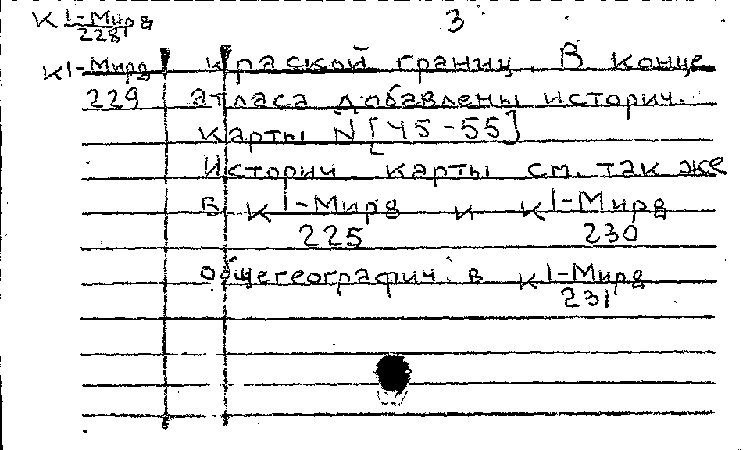 К 1-Мир8 3
228
К 1-Мир8 краской границ. В конце
229 атласа добавлены историч.
карты N [45-55]
Историч. карты см. так же
в К 1-Мир8 и К 1-Мир8
225 230
общегеографич. в К 1-Мир8
231